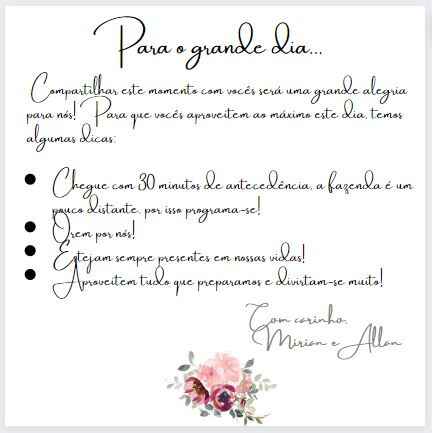 Para o grande dia...
Compartilhar este momento com vocês será uma grande alegria
para nós! Para que vocês aproveitem ao máximo este dia, temos
algumas dicas:
Chegue com 30 minutos de antecedência, a fazenda é um
pouco distante, por isso programa-se!
Orem por nós!
Estejam sempre presentes em nossas vidas!
Aproveitem tudo que preparamos e divirtam-se muito!
Com carinho,
Mirian e Allan